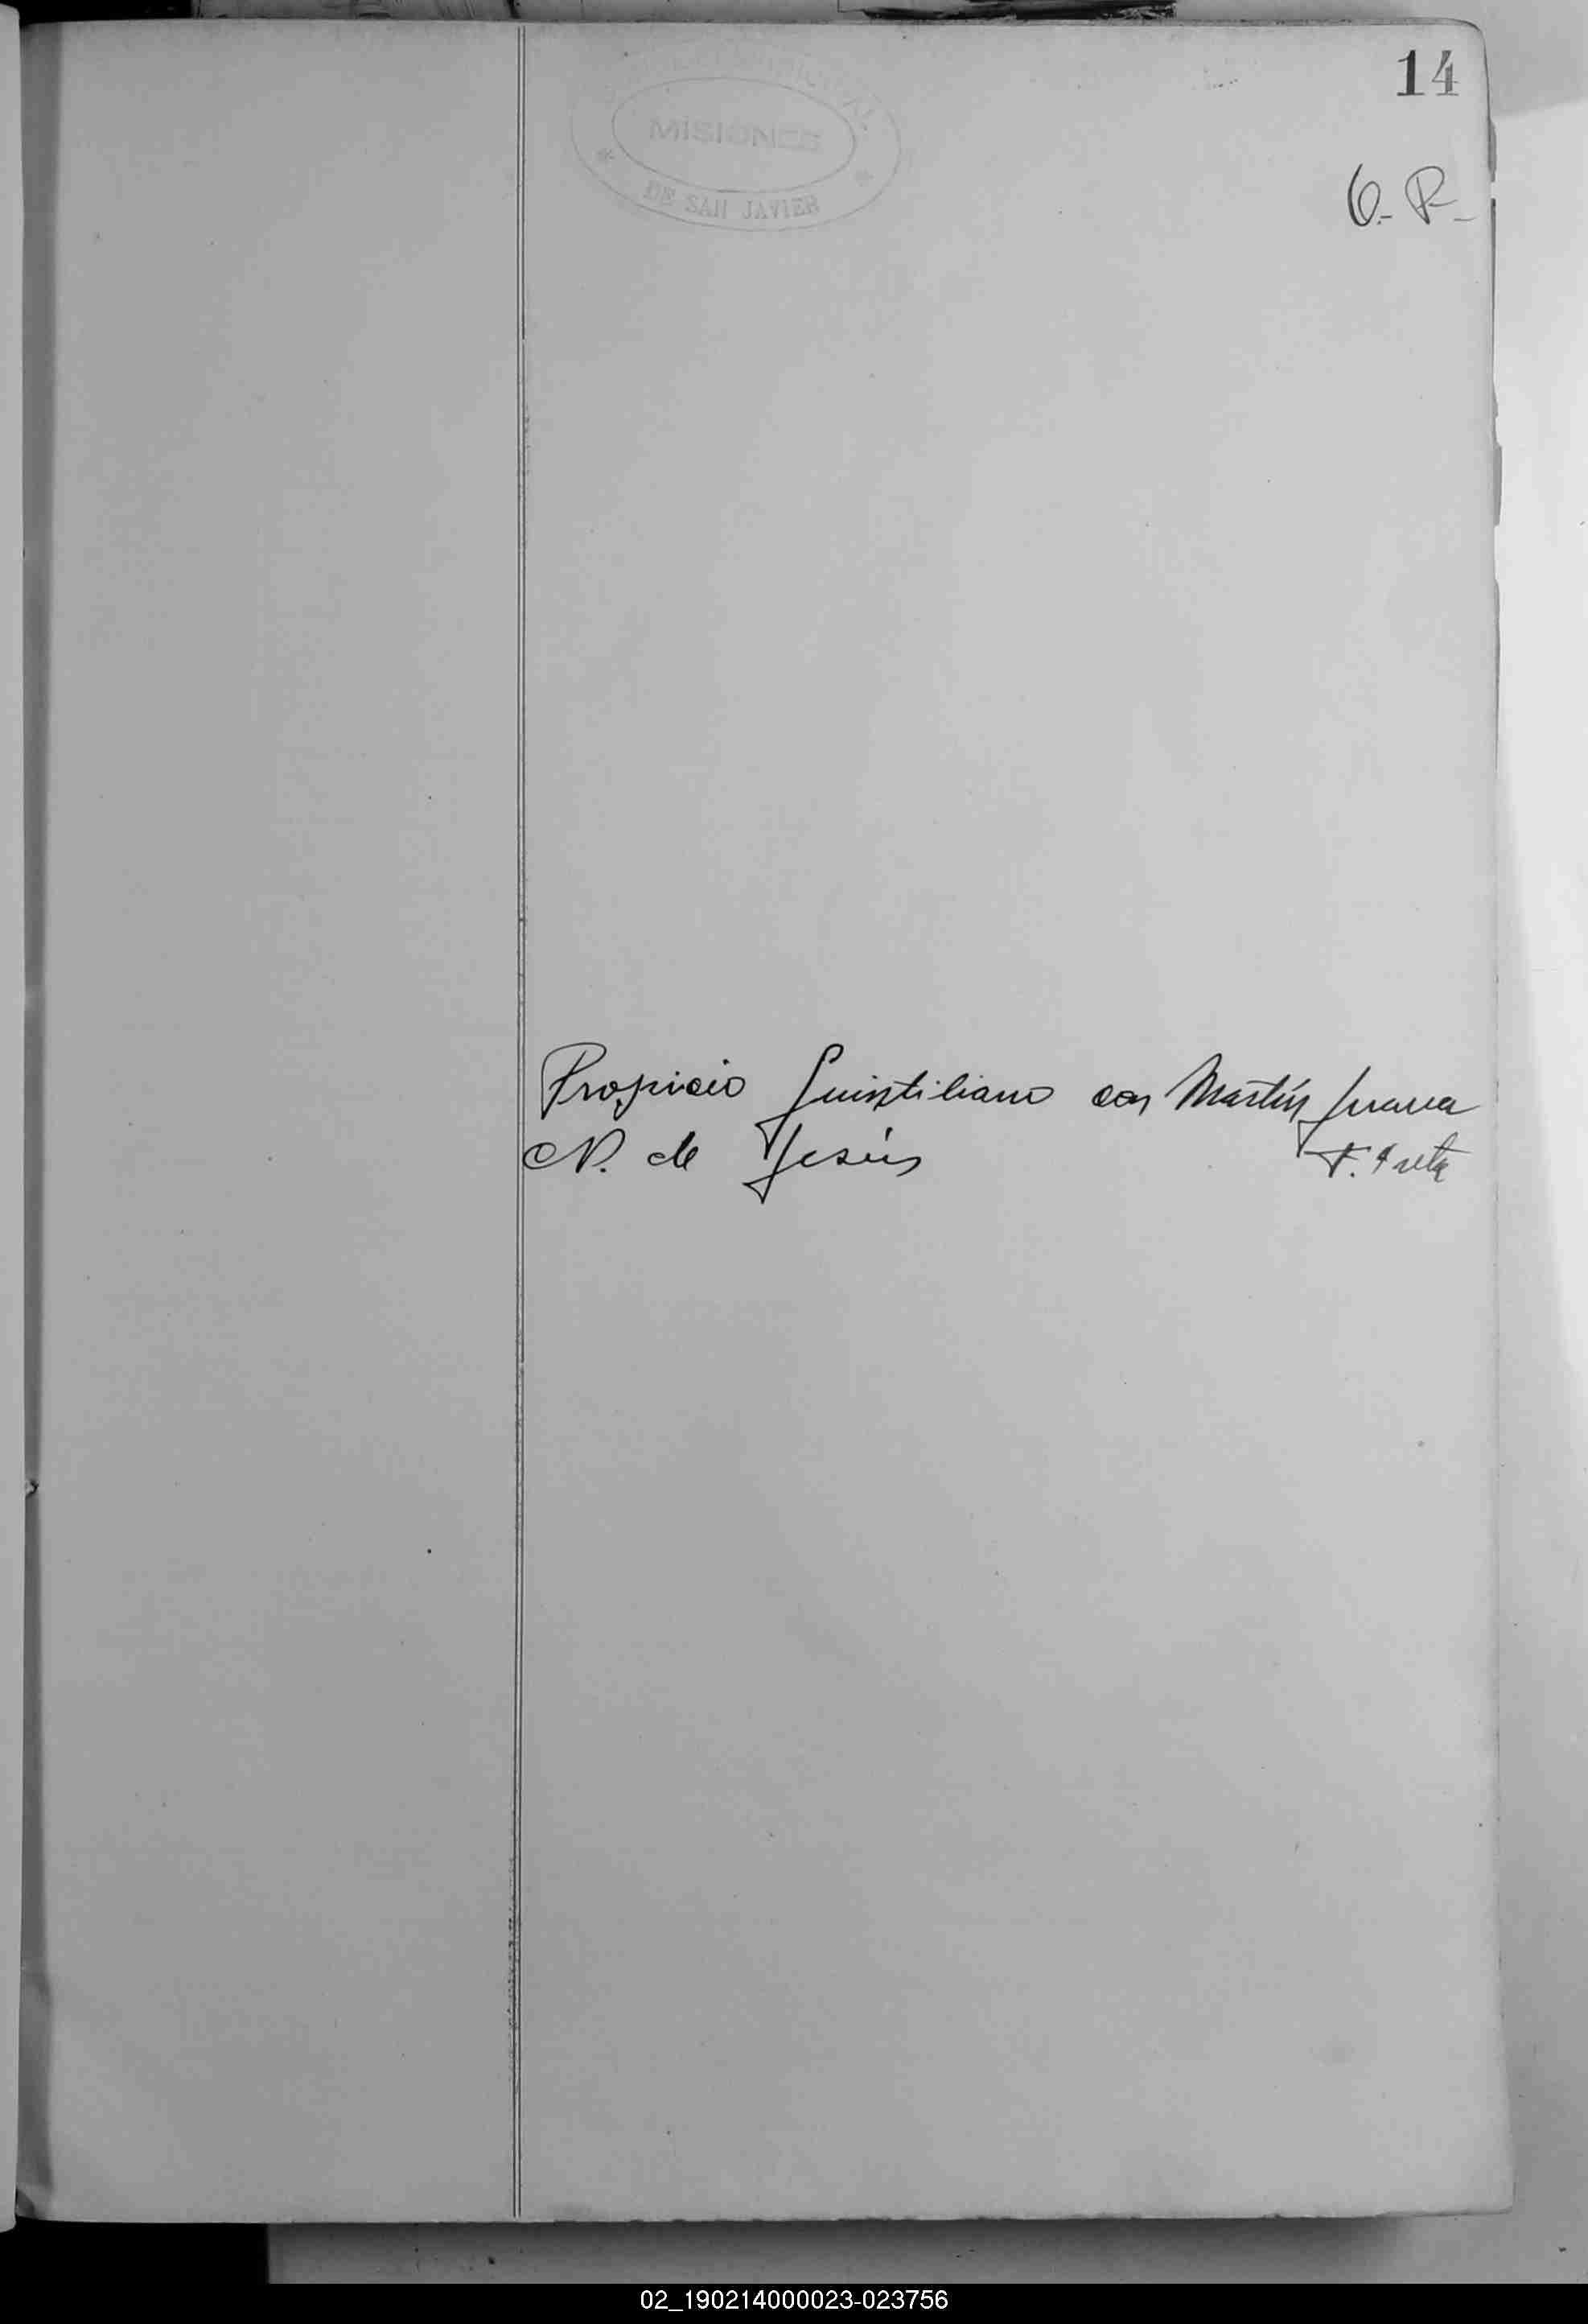 14
MISIONES
DE SAN JAVIER
O.- P.-
Propicio Quintiliano con Martín Juana
N. de Jesús
02_190214000023-023756